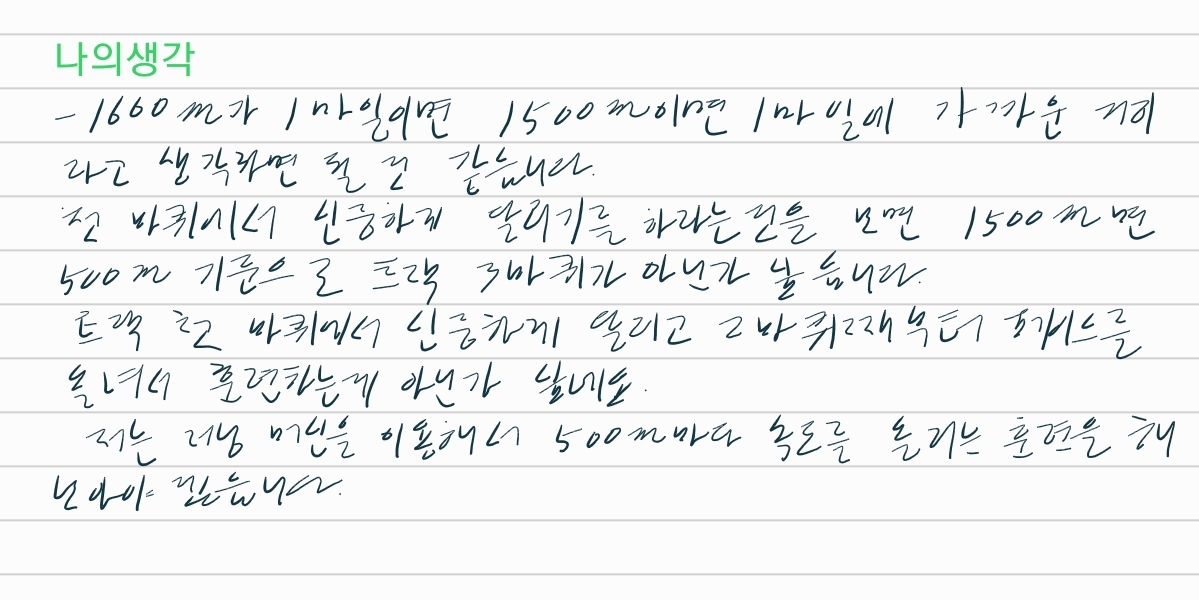 나의생각
- 1600m가 1마일이면 1500m이면 1마일에 가까운 거리
라고 생각하면 될 것 같습니다.
첫 바퀴에서 신중하게 달리기를 하라는것을 보면 1500m면
500m 기준으로 트랙 3바퀴가 아닌가 싶습니다.
트랙 첫 바퀴에서 신중하게 달리고 2바퀴째부터 페이스를
올려서 훈련하는게 아닌가 싶네요.
저는 러닝 머신을 이용해서 500m마다 속도를 올리는 훈련을 해
습니다.